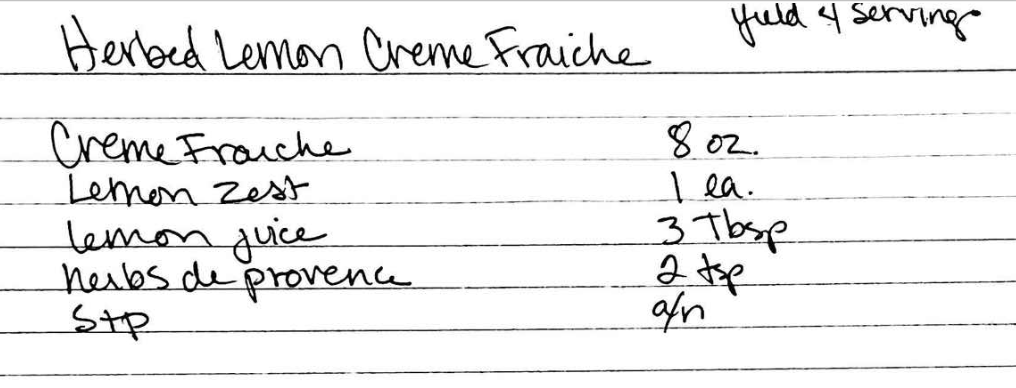 yield 4 servings
Herbed Lemon Creme Fraiche
Creme Fraiche 8 oz.
Lemon Zest 1 ea.
lemon juice 3 Tbsp
herbs de provence 2 tsp
S+p a/n